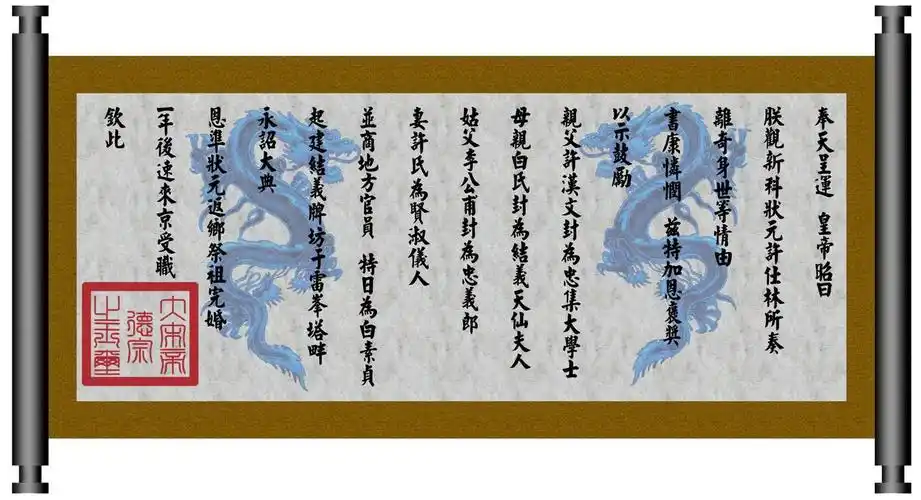 奉天呈運 皇帝昭曰
朕觀新科狀元許仕林所奏
離奇身世等情由
書康憐憫 茲特加恩褒獎
以示鼓勵
親父許漢文封為忠集大學士
母親白氏封為結義天仙夫人
姑父李公甫封為忠義郎
妻許氏為賢淑儀人
並商地方官員 特日為白素貞
起建結義牌坊于雷峯塔畔
永詔大典
恩準狀元返鄉祭祖完婚
一年後速來京受職
欽此
大宋
德宗
之玉璽